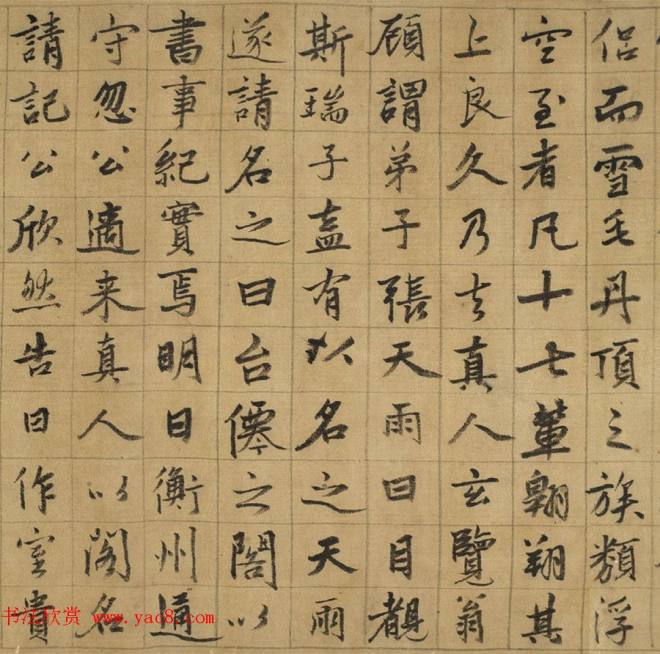 侣而雪毛丹頂之族類浮
空至者凡十七輩翱翔其
上良久乃去真人玄覽翁
顧謂弟子張天雨曰目覩
斯瑞子盍有以名之天雨
遂請名之曰台僊之閣以
書事紀實焉明日衡州道
守忽公適来真人以閣名
請記公欣然告曰作室貴
书法欣赏 www.yac8.com